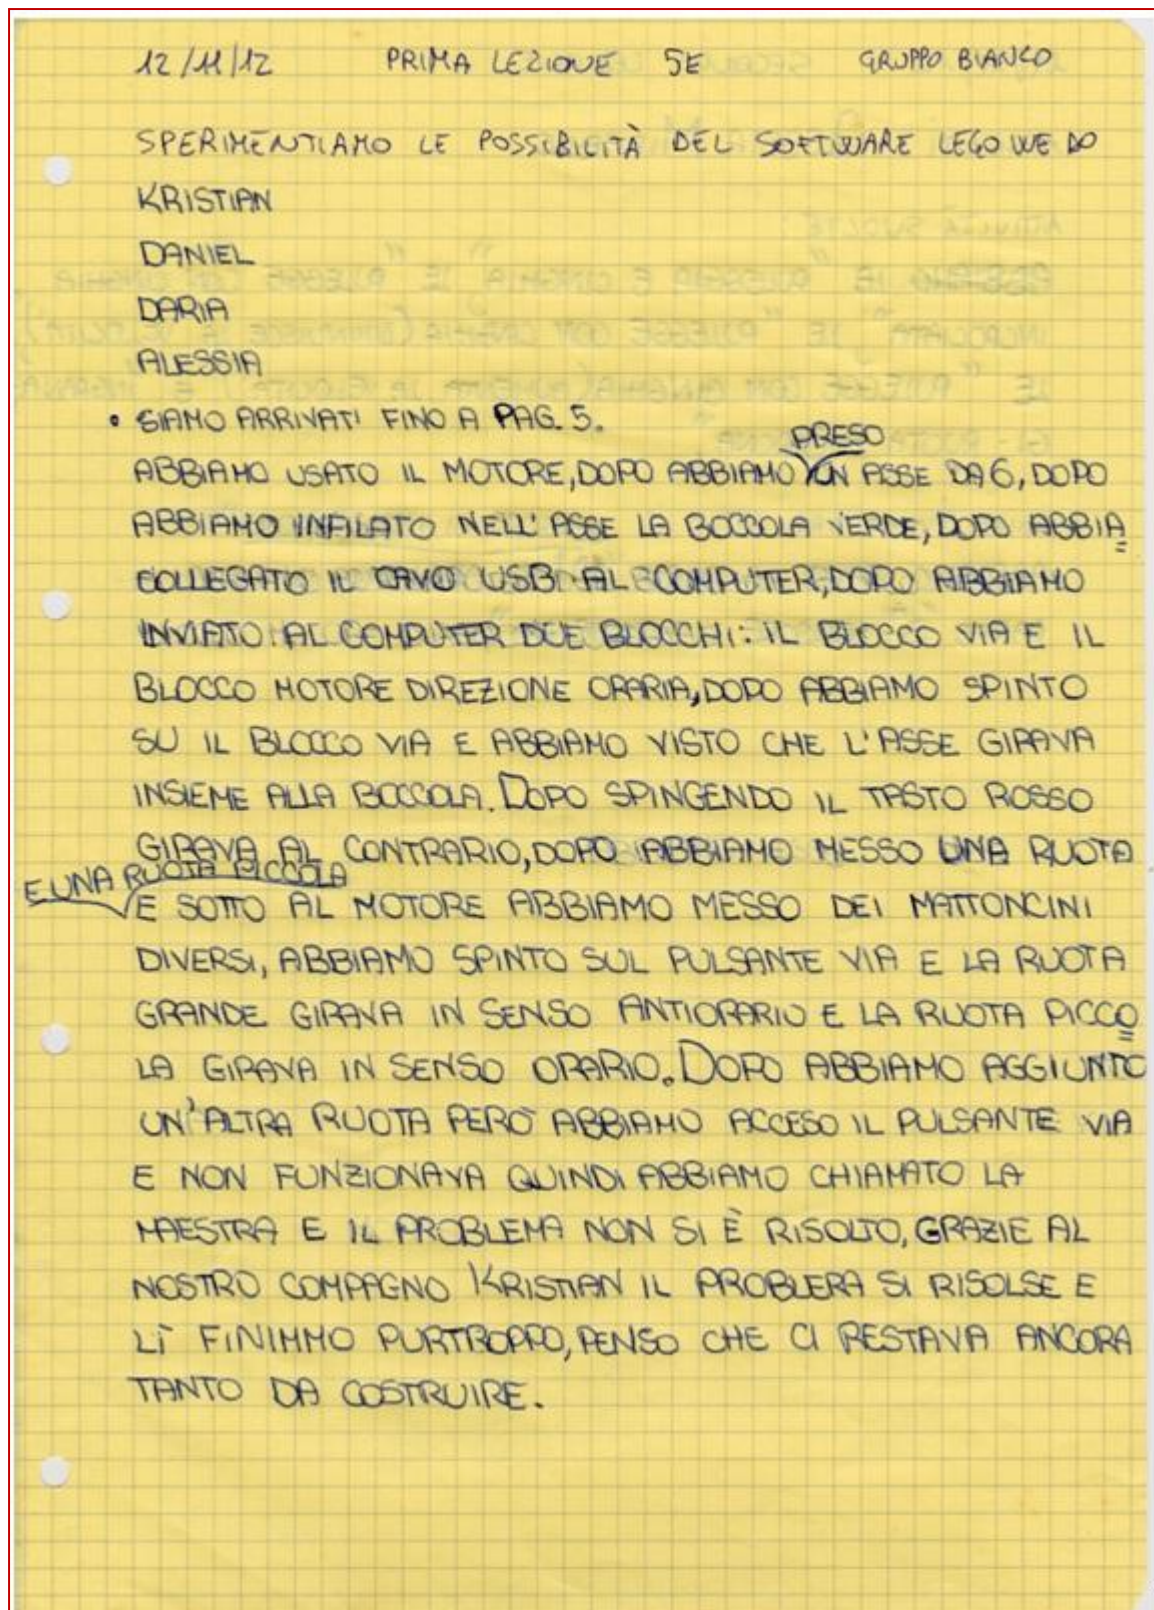 12/11/12 PRIMA LEZIONE 5E GRUPPO BIANCO
SPERIMENTIAMO LE POSSIBILITÀ DEL SOFTWARE LEGO WE DO
KRISTIAN
DANIEL
DARIA
ALESSIA
• SIAMO ARRIVATI FINO A PAG. 5.
PRESO
ABBIAMO USATO IL MOTORE, DOPO ABBIAMO UN ASSE DA 6, DOPO
ABBIAMO INFILATO NELL'ASSE LA BOCCOLA VERDE, DOPO ABBIA
COLLEGATO IL CAVO USB AL COMPUTER, DOPO ABBIAMO
INVIATO AL COMPUTER DUE BLOCCHI: IL BLOCCO VIA E IL
BLOCCO MOTORE DIREZIONE ORARIA, DOPO ABBIAMO SPINTO
SU IL BLOCCO VIA E ABBIAMO VISTO CHE L'ASSE GIRAVA
INSIEME ALLA BOCCOLA. DOPO SPINGENDO IL TASTO ROSSO
GIRAVA AL CONTRARIO, DOPO ABBIAMO MESSO UNA RUOTA
E UNA RUOTA PICCOLA
E SOTTO AL MOTORE ABBIAMO MESSO DEI MATTONCINI
DIVERSI, ABBIAMO SPINTO SUL PULSANTE VIA E LA RUOTA
GRANDE GIRAVA IN SENSO ANTIORARIO E LA RUOTA PICCO
LA GIRAVA IN SENSO ORARIO. DOPO ABBIAMO AGGIUNTO
UN'ALTRA RUOTA PERÒ ABBIAMO ACCESO IL PULSANTE VIA
E NON FUNZIONAVA QUINDI ABBIAMO CHIAMATO LA
MAESTRA E IL PROBLEMA NON SI È RISOLTO, GRAZIE AL
NOSTRO COMPAGNO KRISTIAN IL PROBLERA SI RISOLSE E
LÌ FINIMMO PURTROPPO, PENSO CHE CI RESTAVA ANCORA
TANTO DA COSTRUIRE.